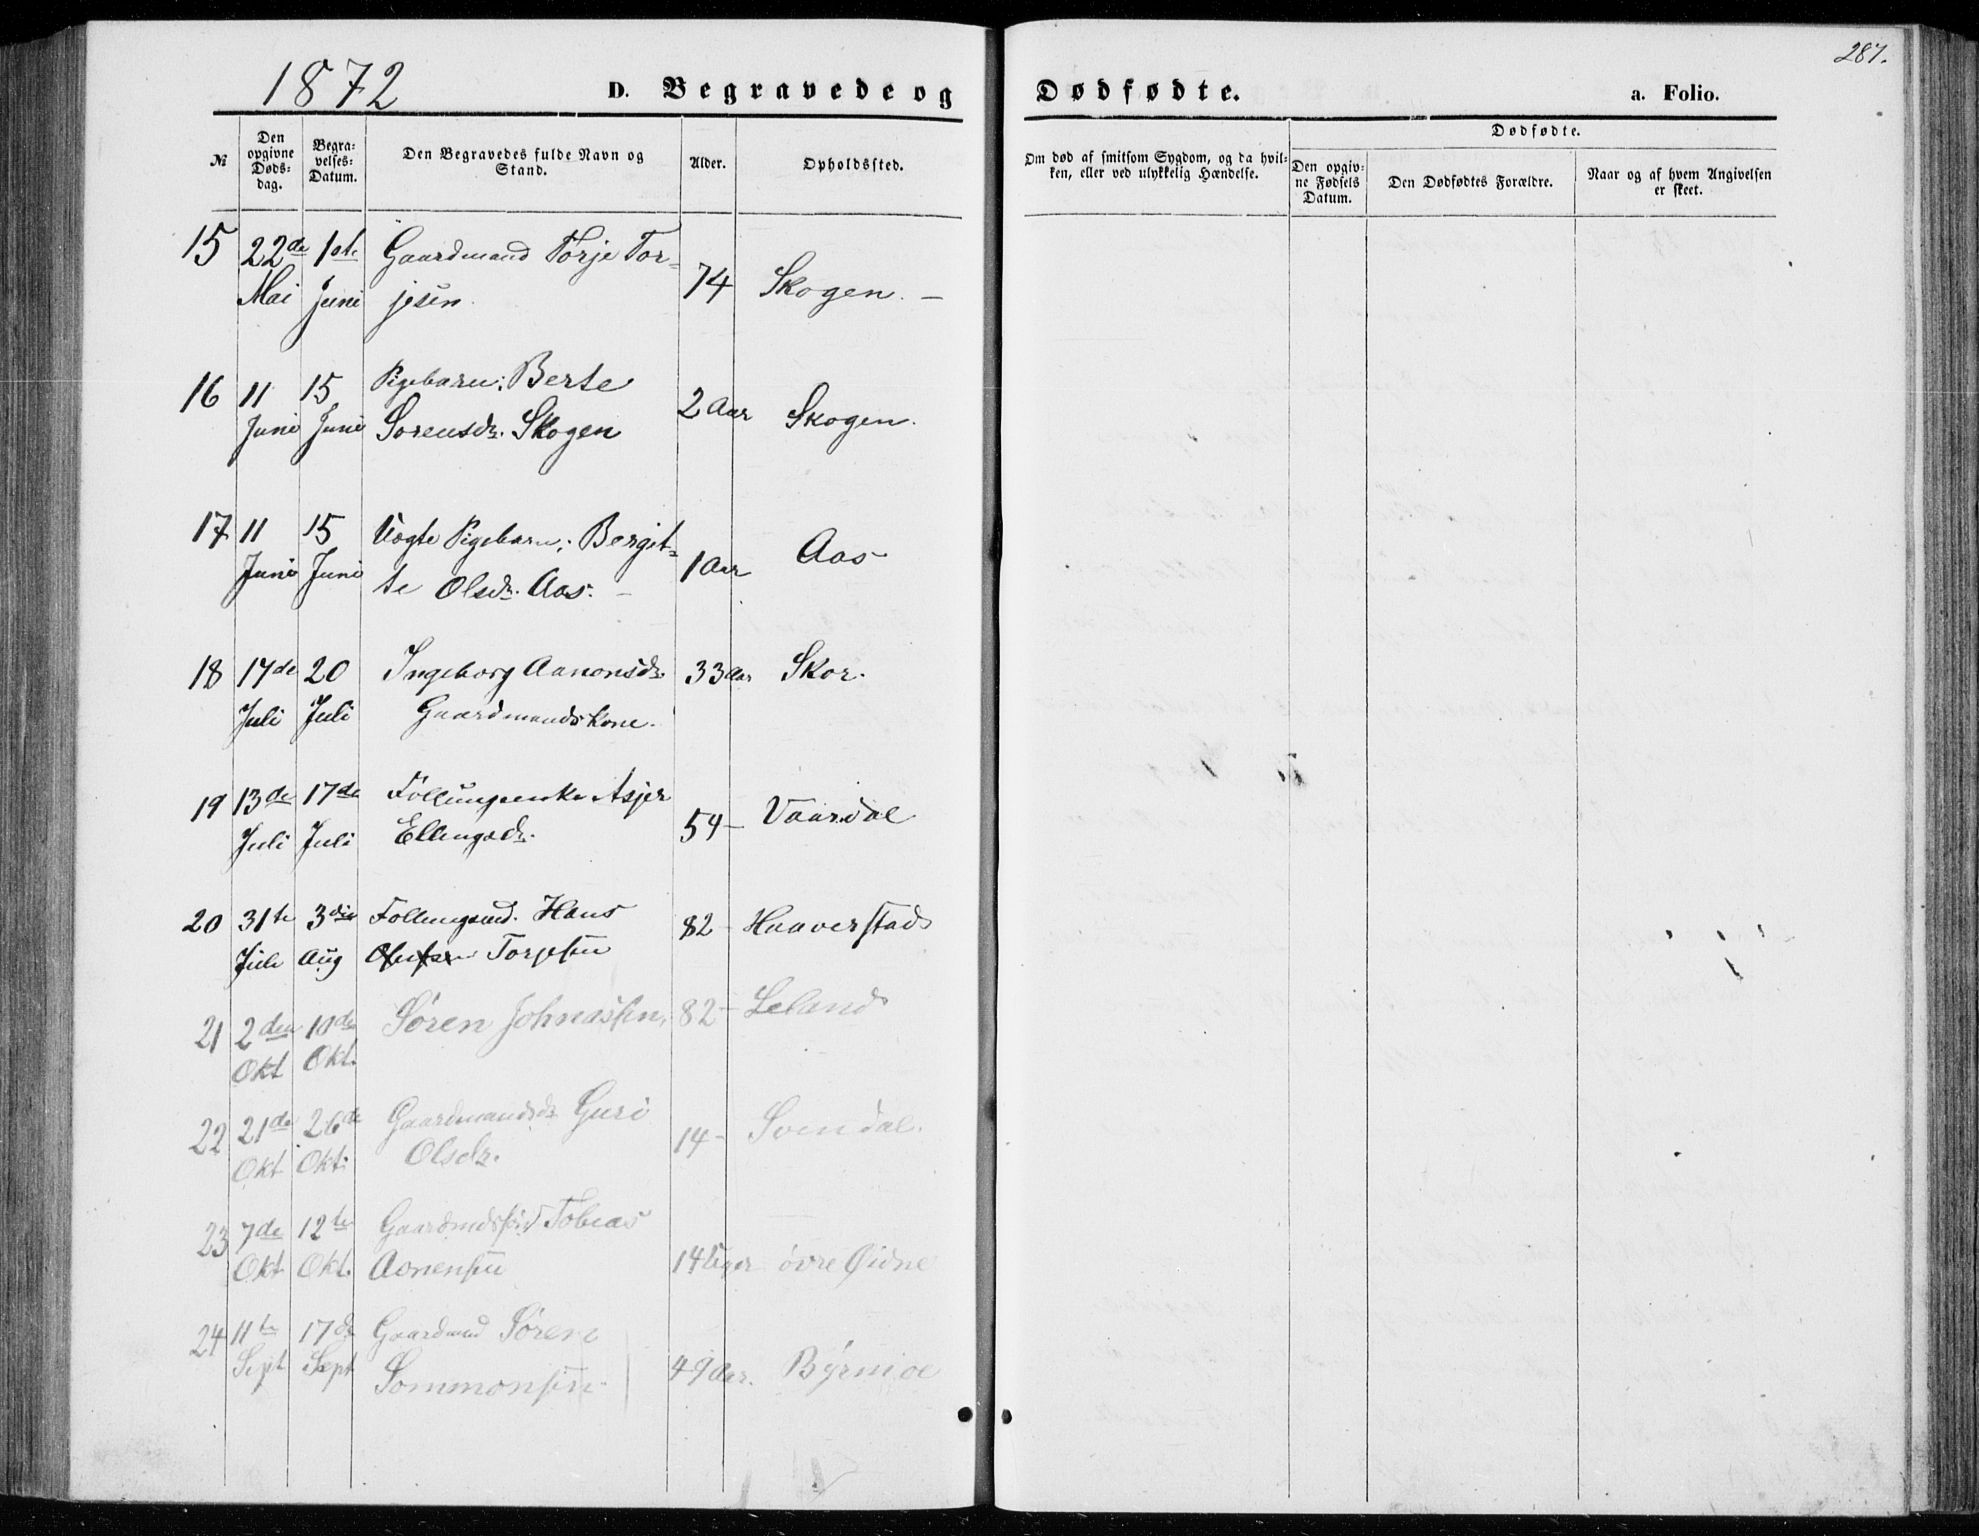 287.
1872
D. Begravede og Dødfødte.
a. Folio.
№
Den opgivne Døds-dag.
Begra-velses-Datum.
Den Begravedes fulde Navn og Stand.
Alder.
Opholdssted.
Om død af smitsom Sygdom, og da hvil-ken, eller ved ulykkelig Hændelse.
Dødfødte.
Den opgiv-ne Fødsels Datum.
Den Dødfødtes Forældre.
Naar og af hvem Angivelsen er skeet.
15 22de 1ste Gaardmand Torje Tor-
Mai Juni jesen 74 Skogen. –
16 11 15 Pigebarn: Berte
Juni Juni Sorensdr. Skogen 2 Aar Skogen.
17 11 15 Uægte Pigebarn: Bergit-
Juni Juni te Olsdr. Aas. – 1 Aar Aas
18 17de 20 Ingeborg Aanonsdr. 33 Aar Skor.
Juli Juli Gaardmandskone.
19 13de 17de Follungsenke Asjer
Juli Juli Ellingsdr. 54– Vaardal
20 31te 3die Follungmd. Hans 82– Haaverstad
Juli Aug Torjesen
21 2den 10de Søren Johnassen, 82– Leland
Okt Okt.
22 21de 26de Gaardmandsdr Guri
Okt Okt: Olsdr. 14– Svindal.
23 7de 12te Gaardmdssøn Tobias
Okt Okt. Aanensen 14 Uger øvre Øidne
24 11te 17de Gaardmd Sören
Sept Sept Sommonsen 49 Aar.